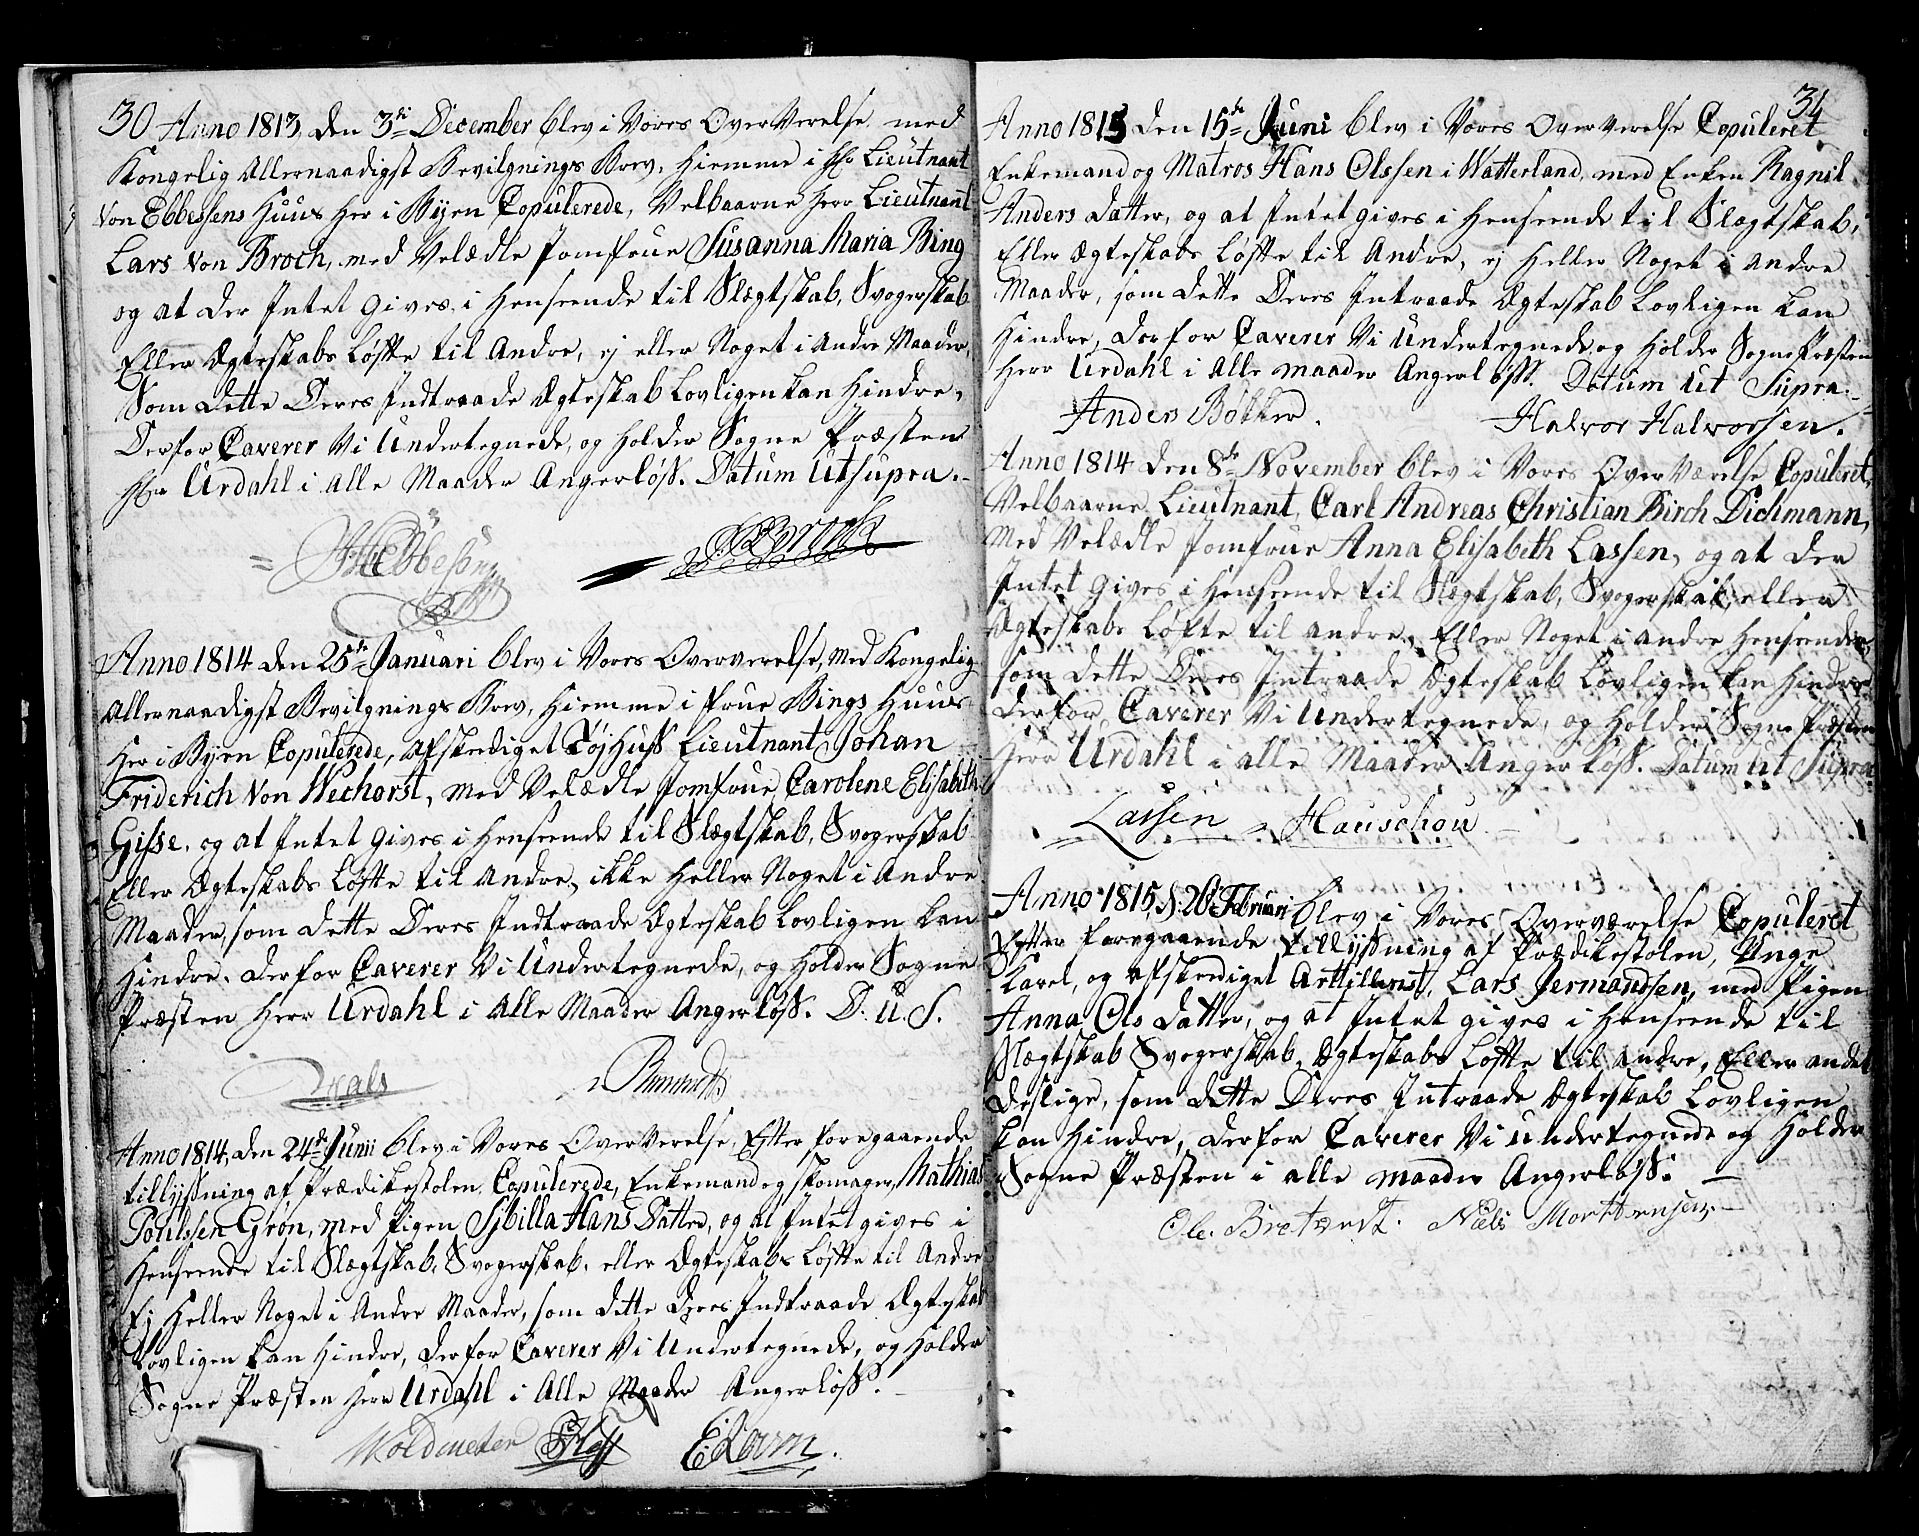 30 Anno 1813, den 3di December blev i Vores OverVerelse med
Kongelig Allernaadigst Bevilgnings Brev, Hiemme i Hr Lieutnant
Von Ebbesens Huus her i Byen Copulerede, Velbaarne Herr Lieutnant
Lars Von Broch, med Velædle Jomfrue Susanna Maria Bing
og at der Intet Gives i Henseende til Slægtskab, Svogerskab
Eller Ægteskabs Løfte til Andre, ej eller Noget i Andre Maader,
Som dette Deres Indtraade Ægteskab Lovligen kan Hindre,
Derfor Caverer Vi Undertegnede, og holder Sogne Præsten
Hr Urdahl i alle Maader Angerløss. Datum Utsupra.
Ebbesen Broch
Anno 1814 den 25de Januari blev i Vores Oververelse, med Kongelig
Allernaadigst Bevilgnings Brev, Hiemme i Frue Bings Huus
Her i Byen Copulerede, Afskediget TøjHuss Lieutnant Johan
Friderich Von Wechorst, med Velædle Jomfrue Carolene Elisabeth
Gisse. og at Intet Gives i Henseende til Slægtskab, Svogerskab
Eller Ægteskabs Løfte til Andre, ikke Heller Noget i Andre
Maader, som dette Deres Indtraade Ægteskab Lovligen kan
Hindre. derfor Caverer Vi Undertegnede, og Holder Sogne
Præsten Herr Urdahl i Alle Maader Angerløss. D. U. S.
Anno 1814, den 24de Junii blev i Vores OverVerelse, Efter foregaaende
tillysning af Prædikestolen Copulerede, Enkemand og Skomager, Mathias
Pouhlsen Grøn, med Pigen Sibilla Hans Datter, og at Intet gives i
Henseende til Slægtskab, Svogerskab, eller Ægteskabs Løfte til Andre
Ej Heller Noget i Andre Maader, som dette Deres Indtraade Ægteskab
Lovligen kan Hindre, derfor Caverer Vi Undertegnede, og Holder
Sogne Præsten Herr Urdahl i Alle Maader Angerløss.
Woldmester
31
Anno 1813 den 15de Juni blev i Vores OverVerelse Copuleret
Enkemand og Matros Hans Olssen i Watterland, med Enken Ragnil
Anders Datter, og at Intet gives i Henseende til Slægtskab,
Eller Ægteskabs Løfte til Andre, ej Heller Noget i Andre
Maader, som dette Deres Intraade Ægteskab Lovligen kan
Hindre, Derfor Caverer Vi Undertegnede og Holder Sogne Præsten
Herr Urdahl i Alle maader Angerløss. Datum Ut Supra.
Anders Bøkker. Halvor Halvorssen.
Anno 1814 den 8de November blev i Vores OverVærelse Copuleret,
Velbaarne Lieutnant Carl Andreas Christian Birch Dichmann,
Med Velædle Jomfrue Anna Elisabeth Lassen, og at der
Intet gives i Henseende til Slægtskab, Svogerskab, eller
Ægteskabs Løfte til andre, Eller Noget i andre Henseender
som dette Deres Intraade Ægteskab Lovligen kan Hindre
Derfor Caverer Vi Undertegnede, og Holder Sogne Præsten
Herr Urdahl i alle Maader Angerløss. Datum Ut Supra
Lassen Hauschou
Anno 1815, d. 26 Februari blev i Vores Overværelse Copuleret
Efter foregaaende tillysning af Prædikestolen, Unge
Karl, og Afskediget Arttillerist, Lars Jermandsen, med Pigen
Anna Ols Datter, og at Intet gives i Henseende til
Slægtskab Svogerskab, Ægteskabs Løfte til andre, Eller andet
deslige, som dette Deres Intraade Ægteskab Lovligen
kan Hindre, derfor Caverer Vi Undertegnede og Holder
Sogne Præsten i alle maader Angerløss.
Ole Bretvedt. Niels Morttensen.